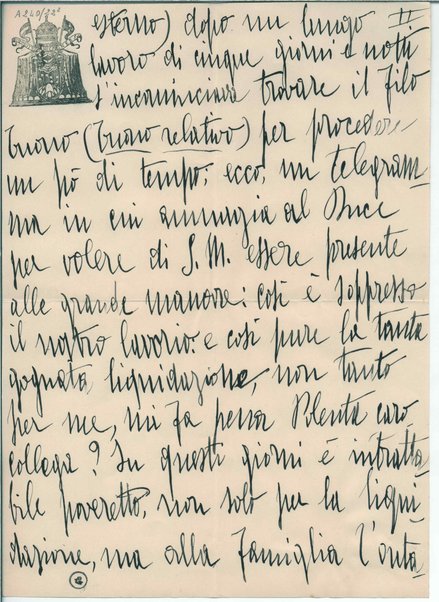 A240/32²
II
esterno) dopo un lungo
lavoro di cinque giorni e notti
s'incominciava trovare il filo
buono (buono relativo) per procedere
un pò di tempo; ecco, un telegram-
ma in cui annunzia al Duce
per volere di S. M. essere presente
alle grande manovre: così è soppresso
il nostro lavorio: e così pure la tanta
sognata liquidazione, non tanto
per me, mi fa pena Polenta caro
collega? In questi giorni é intratta-
bile poveretto, non solo per la liqui-
dazione, ma alla famiglia lonta-